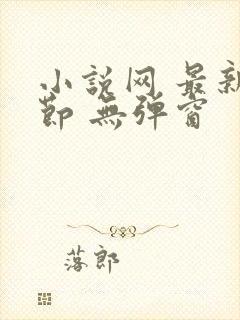 小説网 最新
節 無弹窗
落郎